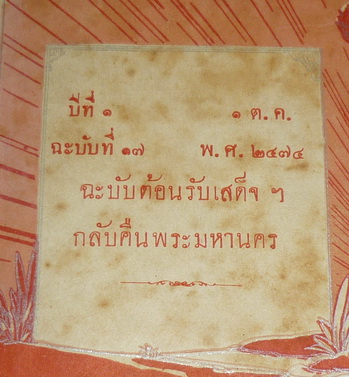 ปีที่ ๑ ๑ ต.ค.
ฉะบับที่ ๑๗ พ.ศ. ๒๔๗๔
ฉะบับต้อนรับเสด็จ ๆ
กลับคืนพระมหานคร